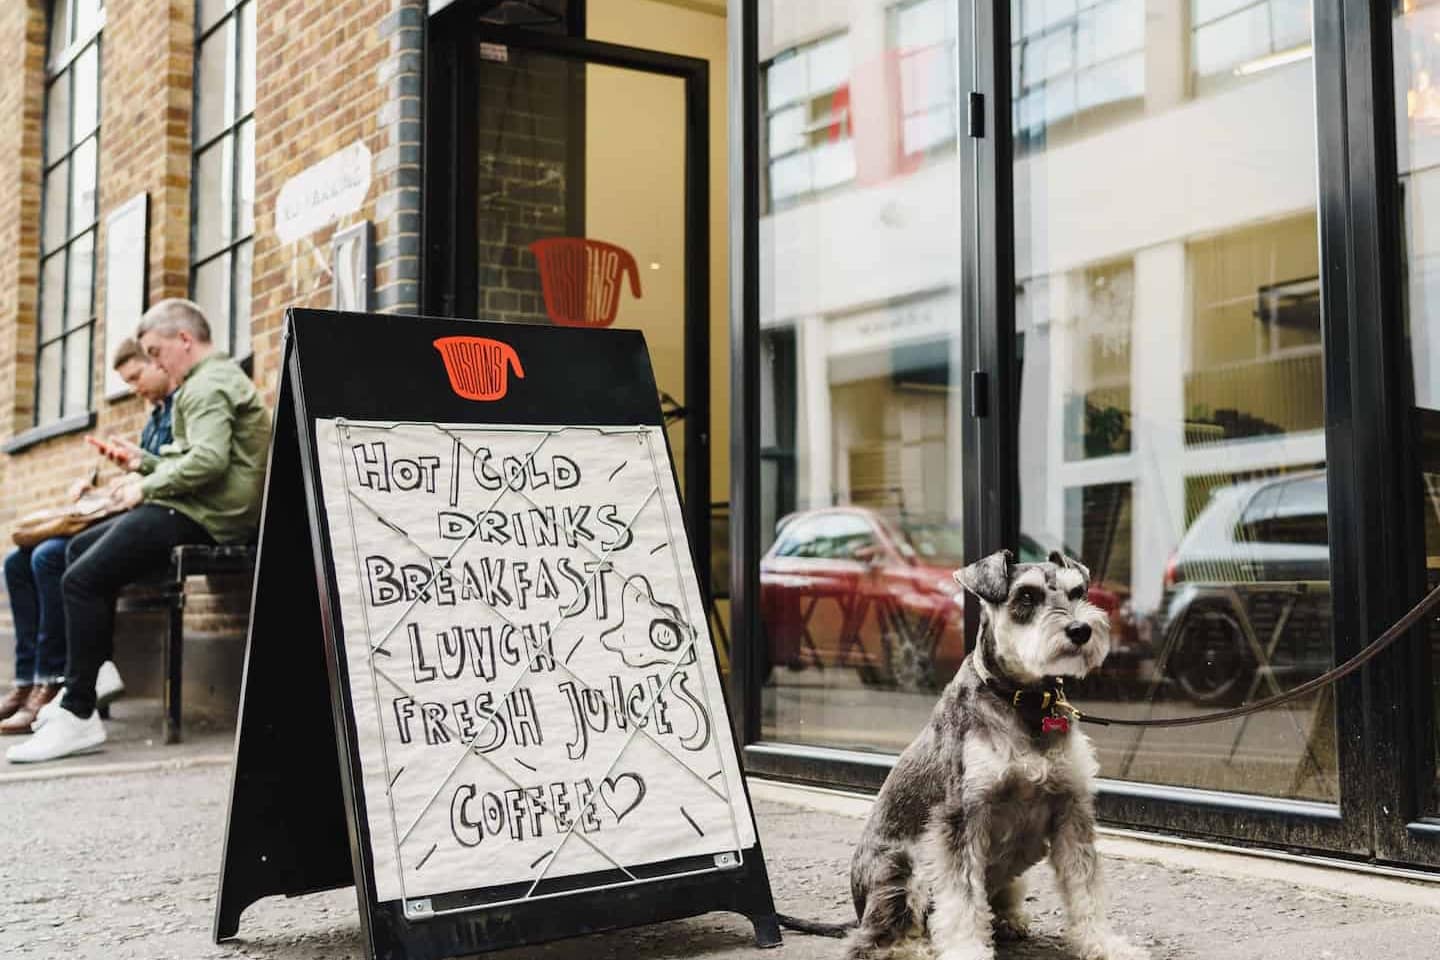 NO PARKING
VISIONS
VISIONS
HOT/COLD
DRINKS
BREAKFAST
LUNCH
FRESH JUICES
COFFEE